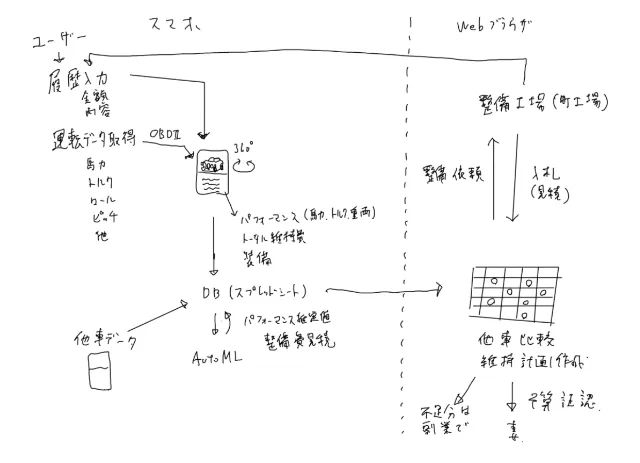 スマホ
Webブラウザ
ユーザー
履歴入力
金額
内容
整備工場(町工場)
運転データ取得
OBDII
360°
馬力
トルク
ロール
ピッチ
他
整備依頼
入札
(見積)
パフォーマンス(馬力、トルク、車両)
トータル維持費
装備
DB(スプレッドシート)
パフォーマンス推定値
整備費見積
他車データ
AutoML
他車比較
維持計画作成
不足分は
副業で
予算証認
妻